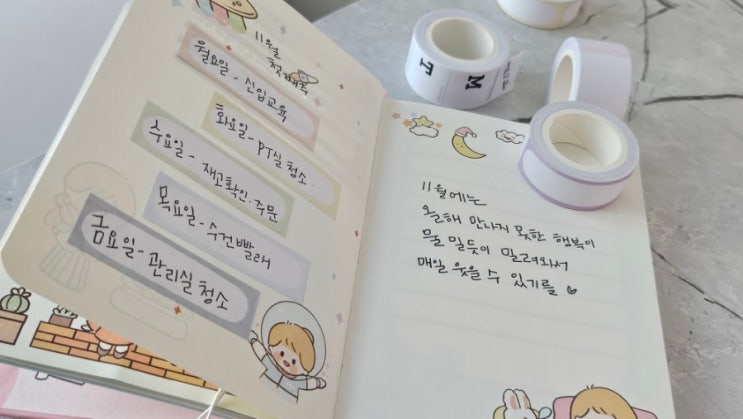 11월
첫째주
월요일 - 신입교육
화요일 - PT실 청소
수요일 - 재고확인·주문
목요일 - 수건빨래
금요일 - 관리실 청소
11월에는
올해 만나지 못한 행복이
물 밀듯이 밀려와서
매일 웃을 수 있기를